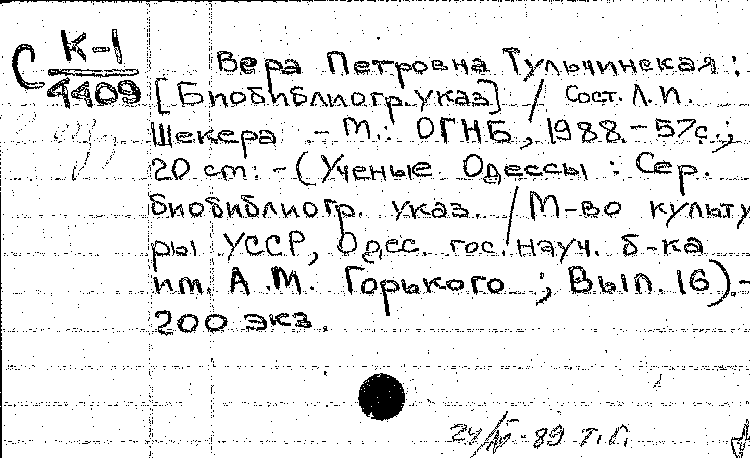 С К-1
4409
Вера Петровна Тульчинская:
[Биобиблиогр. указ] / Сост. Л. П.
Шекера. - М.: ОГНБ, 1988. - 57с.;
20 ст: - (Ученые Одессы: Сер.
биобиблиогр. указ. / М-во культу
ры УССР, Одес. гос. науч. б-ка
им. А.М. Горького; Вып. 16).-
200 экз.
24/IV-89 Т.Г.